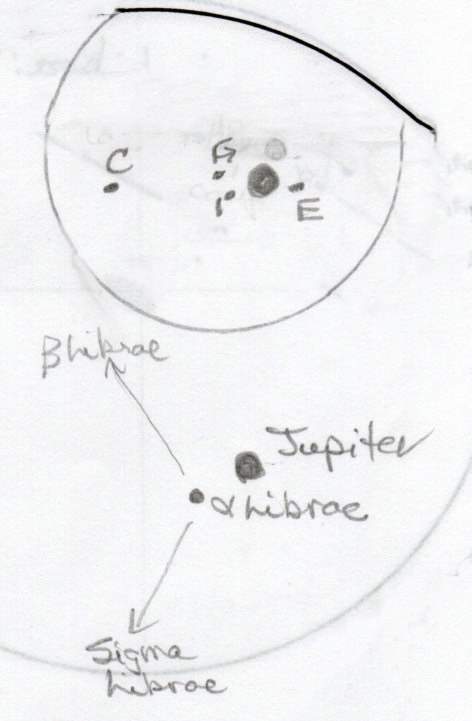 C
G
I
E
β Librae
Jupiter
α Librae
Sigma
Librae